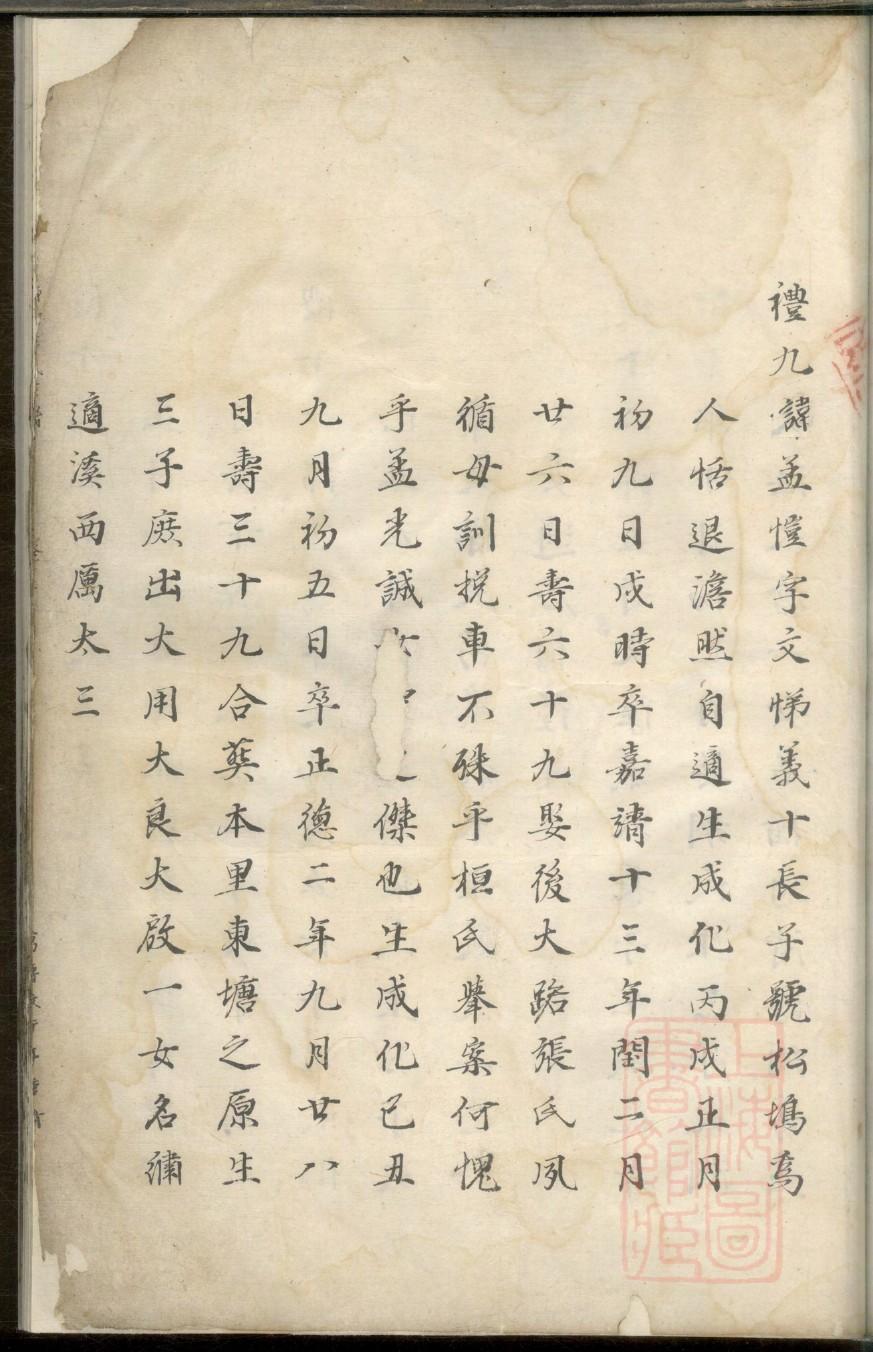 禮九諱孟愷字文悌義十長子號松塢為
人恬退澹然自適生成化丙戌正月
初九日戌時卒嘉靖十三年閏二月
廿六日壽六十九娶後大路張氏夙
循母訓挽車不殊乎桓氏舉案何愧
乎孟光誠女之傑也生成化己丑
九月初五日卒正德二年九月廿八
日壽三十九合葬本里東塘之原生
三子庶出大用大良大啟一女名繡
適溪西厲太三
上海圖書館藏